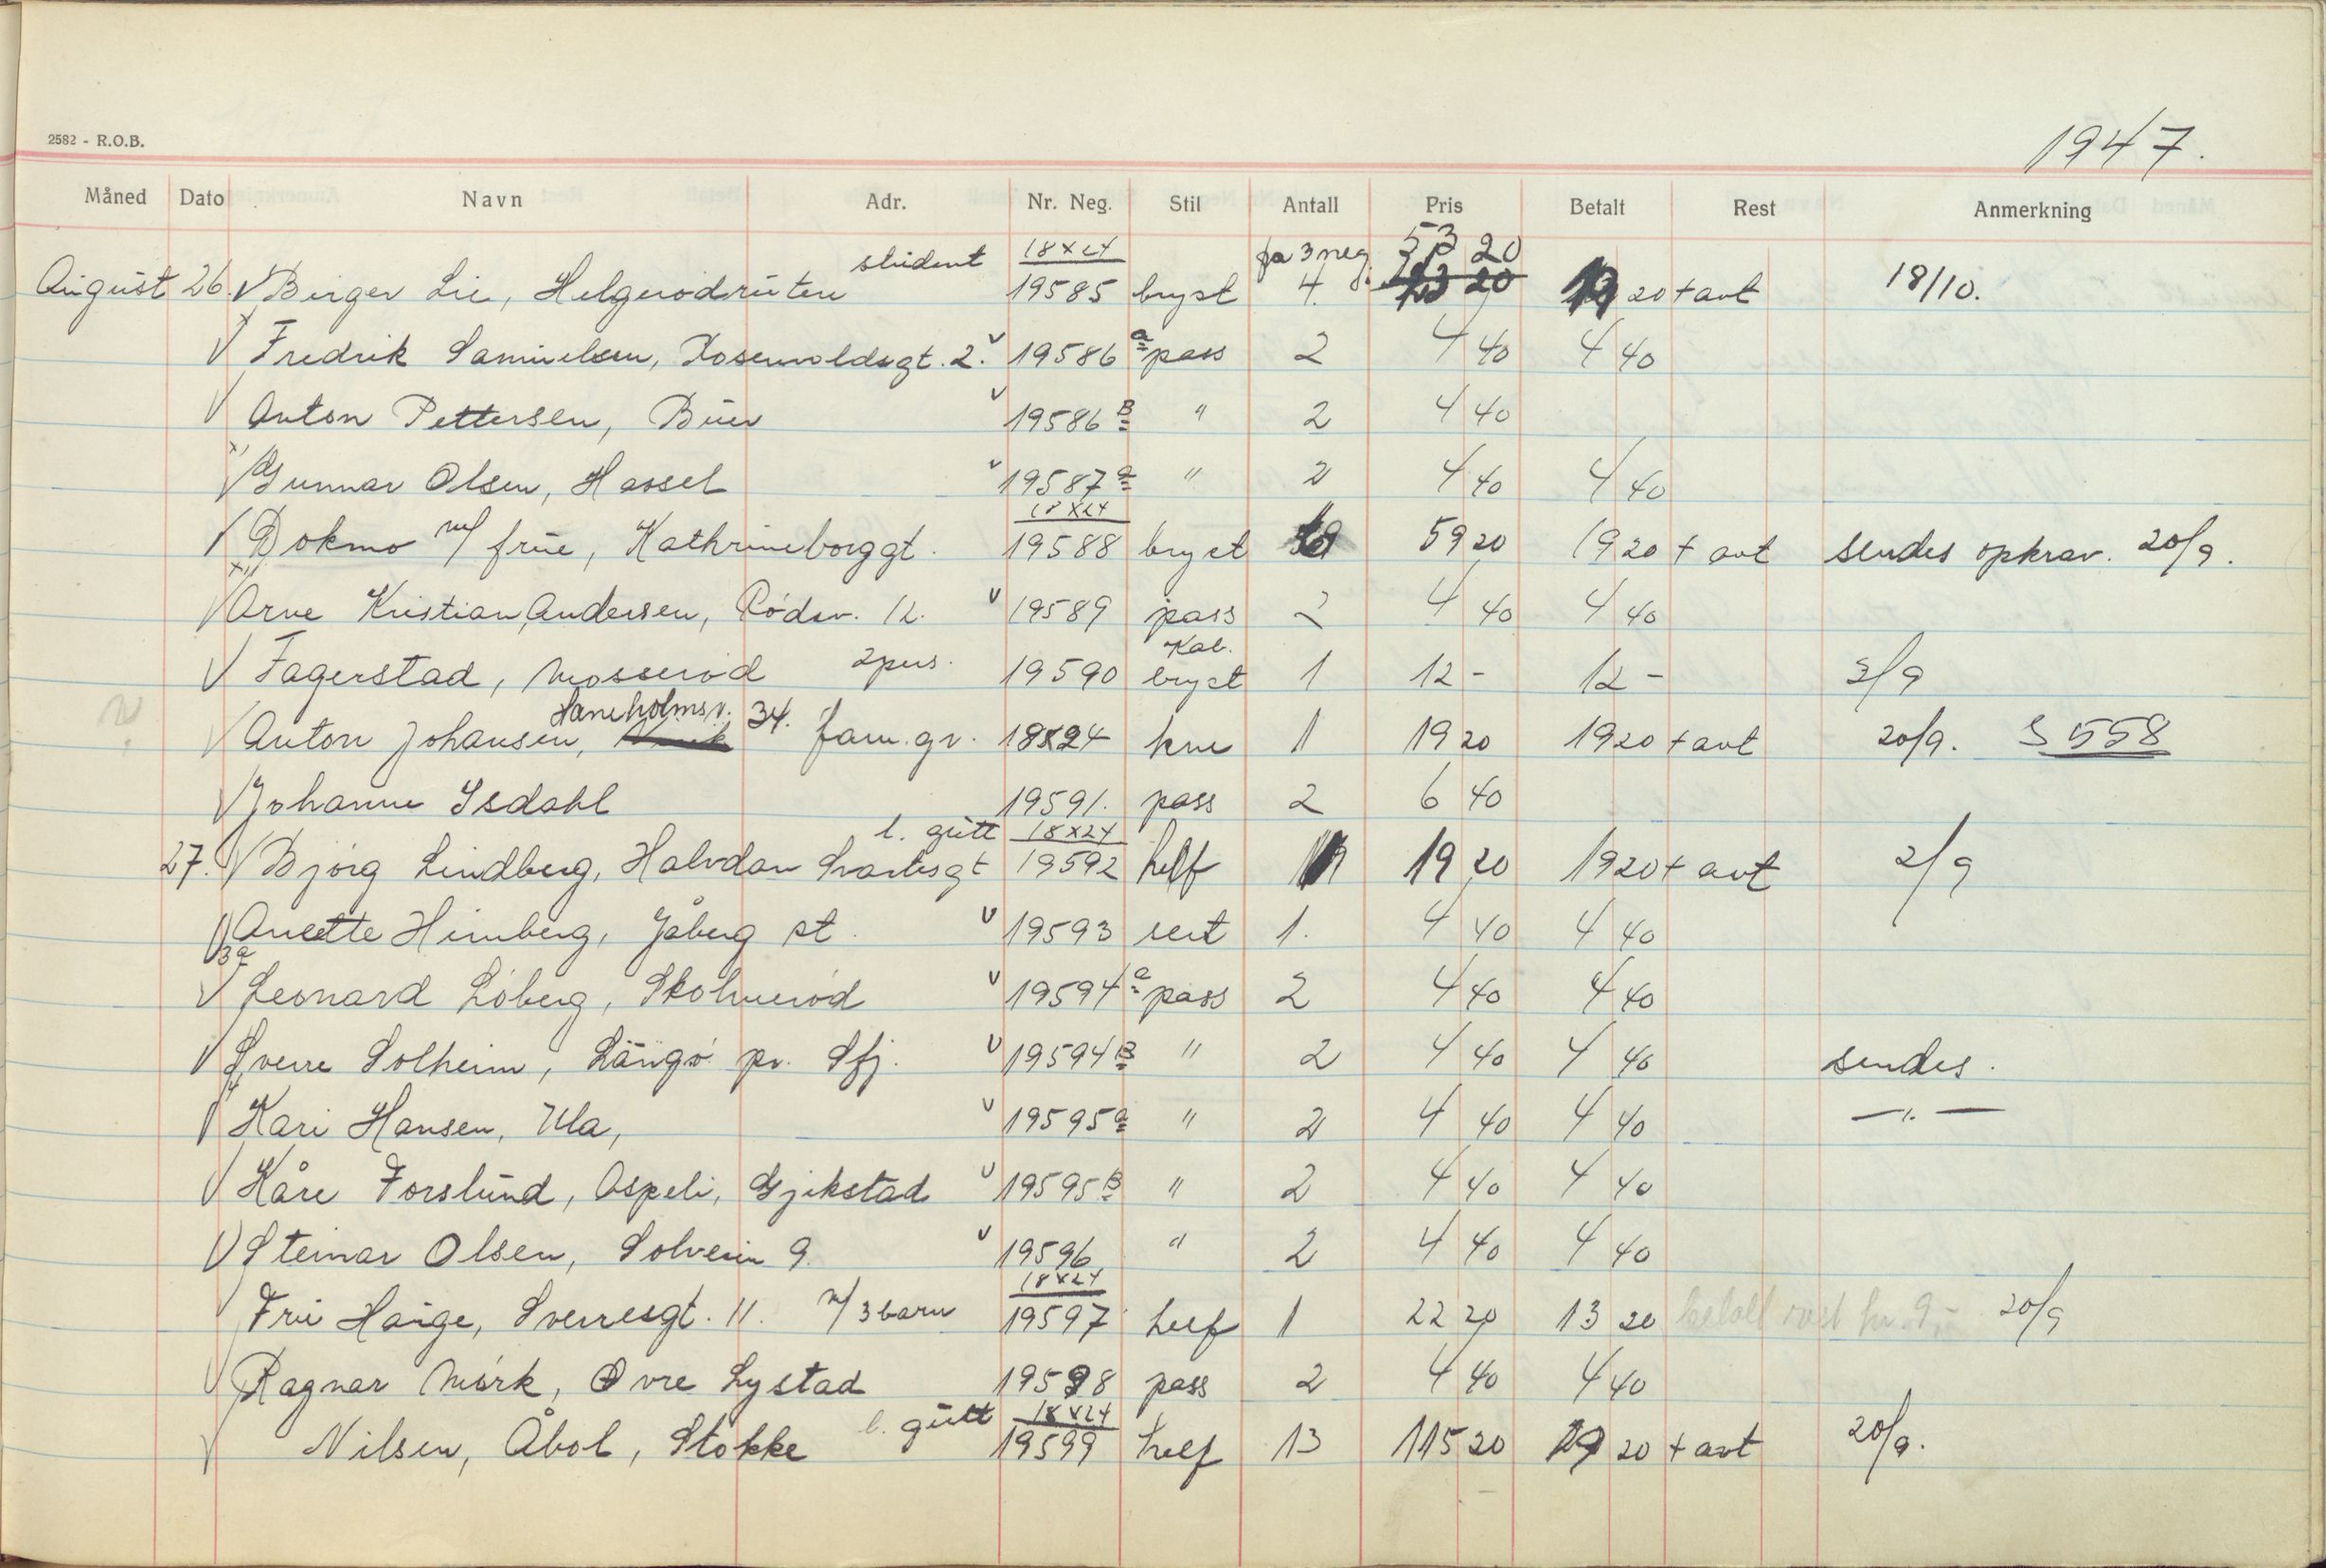 2582 - R.O.B.
1947.
Måned Dato Navn Adr. Nr. Neg. Stil Antall Pris Betalt Rest Anmerkning
student 18x24 fra 3 neg. 53 20
August 26. V Birger Lie, Helgerødruten 19585 bryst 4 20 20 + avt 18/10.
V Fredrik Samuelsen, Rosenvoldsgt. 2. v 19586 a pass 2 4 40 4 40
V Anton Pettersen, Buer v 19586 B " 2 4 40
V Gunnar Olsen, Hassel v 19587 a " 2 4 40 4 40
18x24
V Dokmo m/ frue, Kathrineborggt. 19588 bryst 59 20 19 20 + avt sendes opkrav. 20/9.
V Arve Kristian Andersen, Rødsv. 12. v 19589 pass 2 4 40 4 40
Kab.
V Fagerstad, Mosserød 2 pers. 19590 bryst 1 12 - 12 - 3/9
Haneholmsv. 34.
V Anton Johansen, fam. gr. 18x24 kne 1 19 20 19 20 + avt 20/9. S 558
V Johanne Isdahl 19591. pass 2 6 40
l. gutt 18x24
27. V Bjørg Lindberg, Halvdan Svartesgt 19592 helf 19 20 19 20 + avt 2/9
V Anette Himberg, Jåberg st. v 19593 sert 1. 4 40 4 40
V Leonard Løberg, Skolmerød v 19594 a pass 2 4 40 4 40
V Sverre Solheim, Langø pr. Sfj. v 19594 B " 2 4 40 4 40 sendes.
V Kari Hansen, Ula, v 19595 a " 2 4 40 4 40 — " —
V Kåre Forslund, Aspeli, Gjekstad v 19595 B " 2 4 40 4 40
V Steinar Olsen, Solvein 9. v 19596 " 2 4 40 4 40
18x24
V Fru Hauge, Sverresgt. 11. m/ 3 barn 19597 helf 1 22 20 13 20 betalt rest kr. 9,- 20/9
V Ragnar Mørk, Øvre Lystad 19598 pass 2 4 40 4 40
l. gutt 18x24
V Nilsen, Åbol, Stokke 19599 helf 13 115 20 19 20 + avt 20/9.